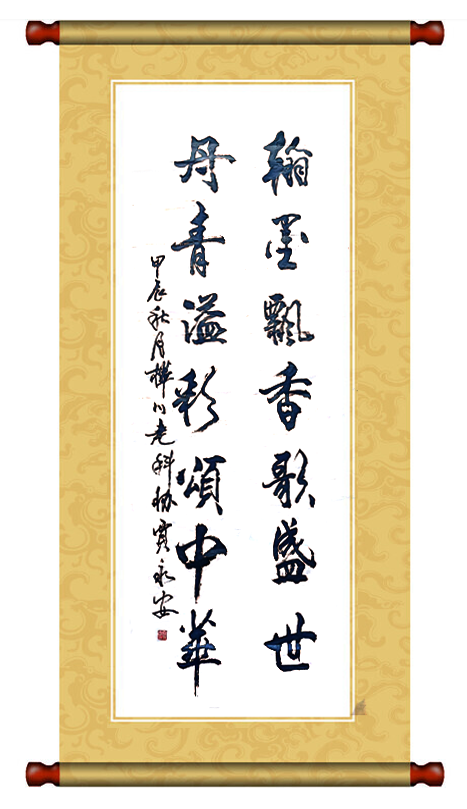 翰墨飄香歌盛世
丹青溢彩頌中華
甲辰秋月樺川老科协賈永安